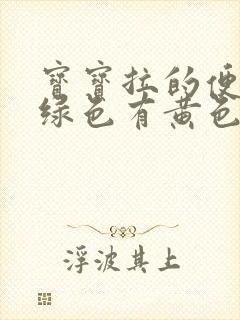 寶寶拉的便
綠色有黃色
浮波其上